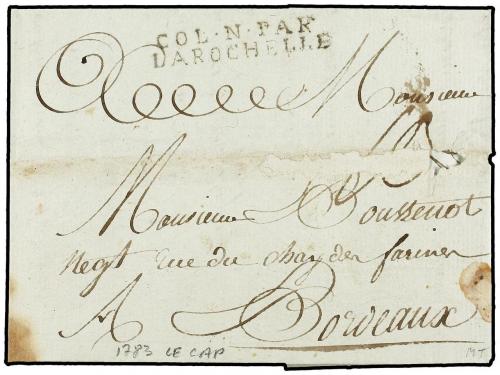 COL·N·PAR
LAROCHELLE
Monsieur
Monsieur Doussenot
Negt rue du Chay des farines
A Bordeaux
1783 LE CAP